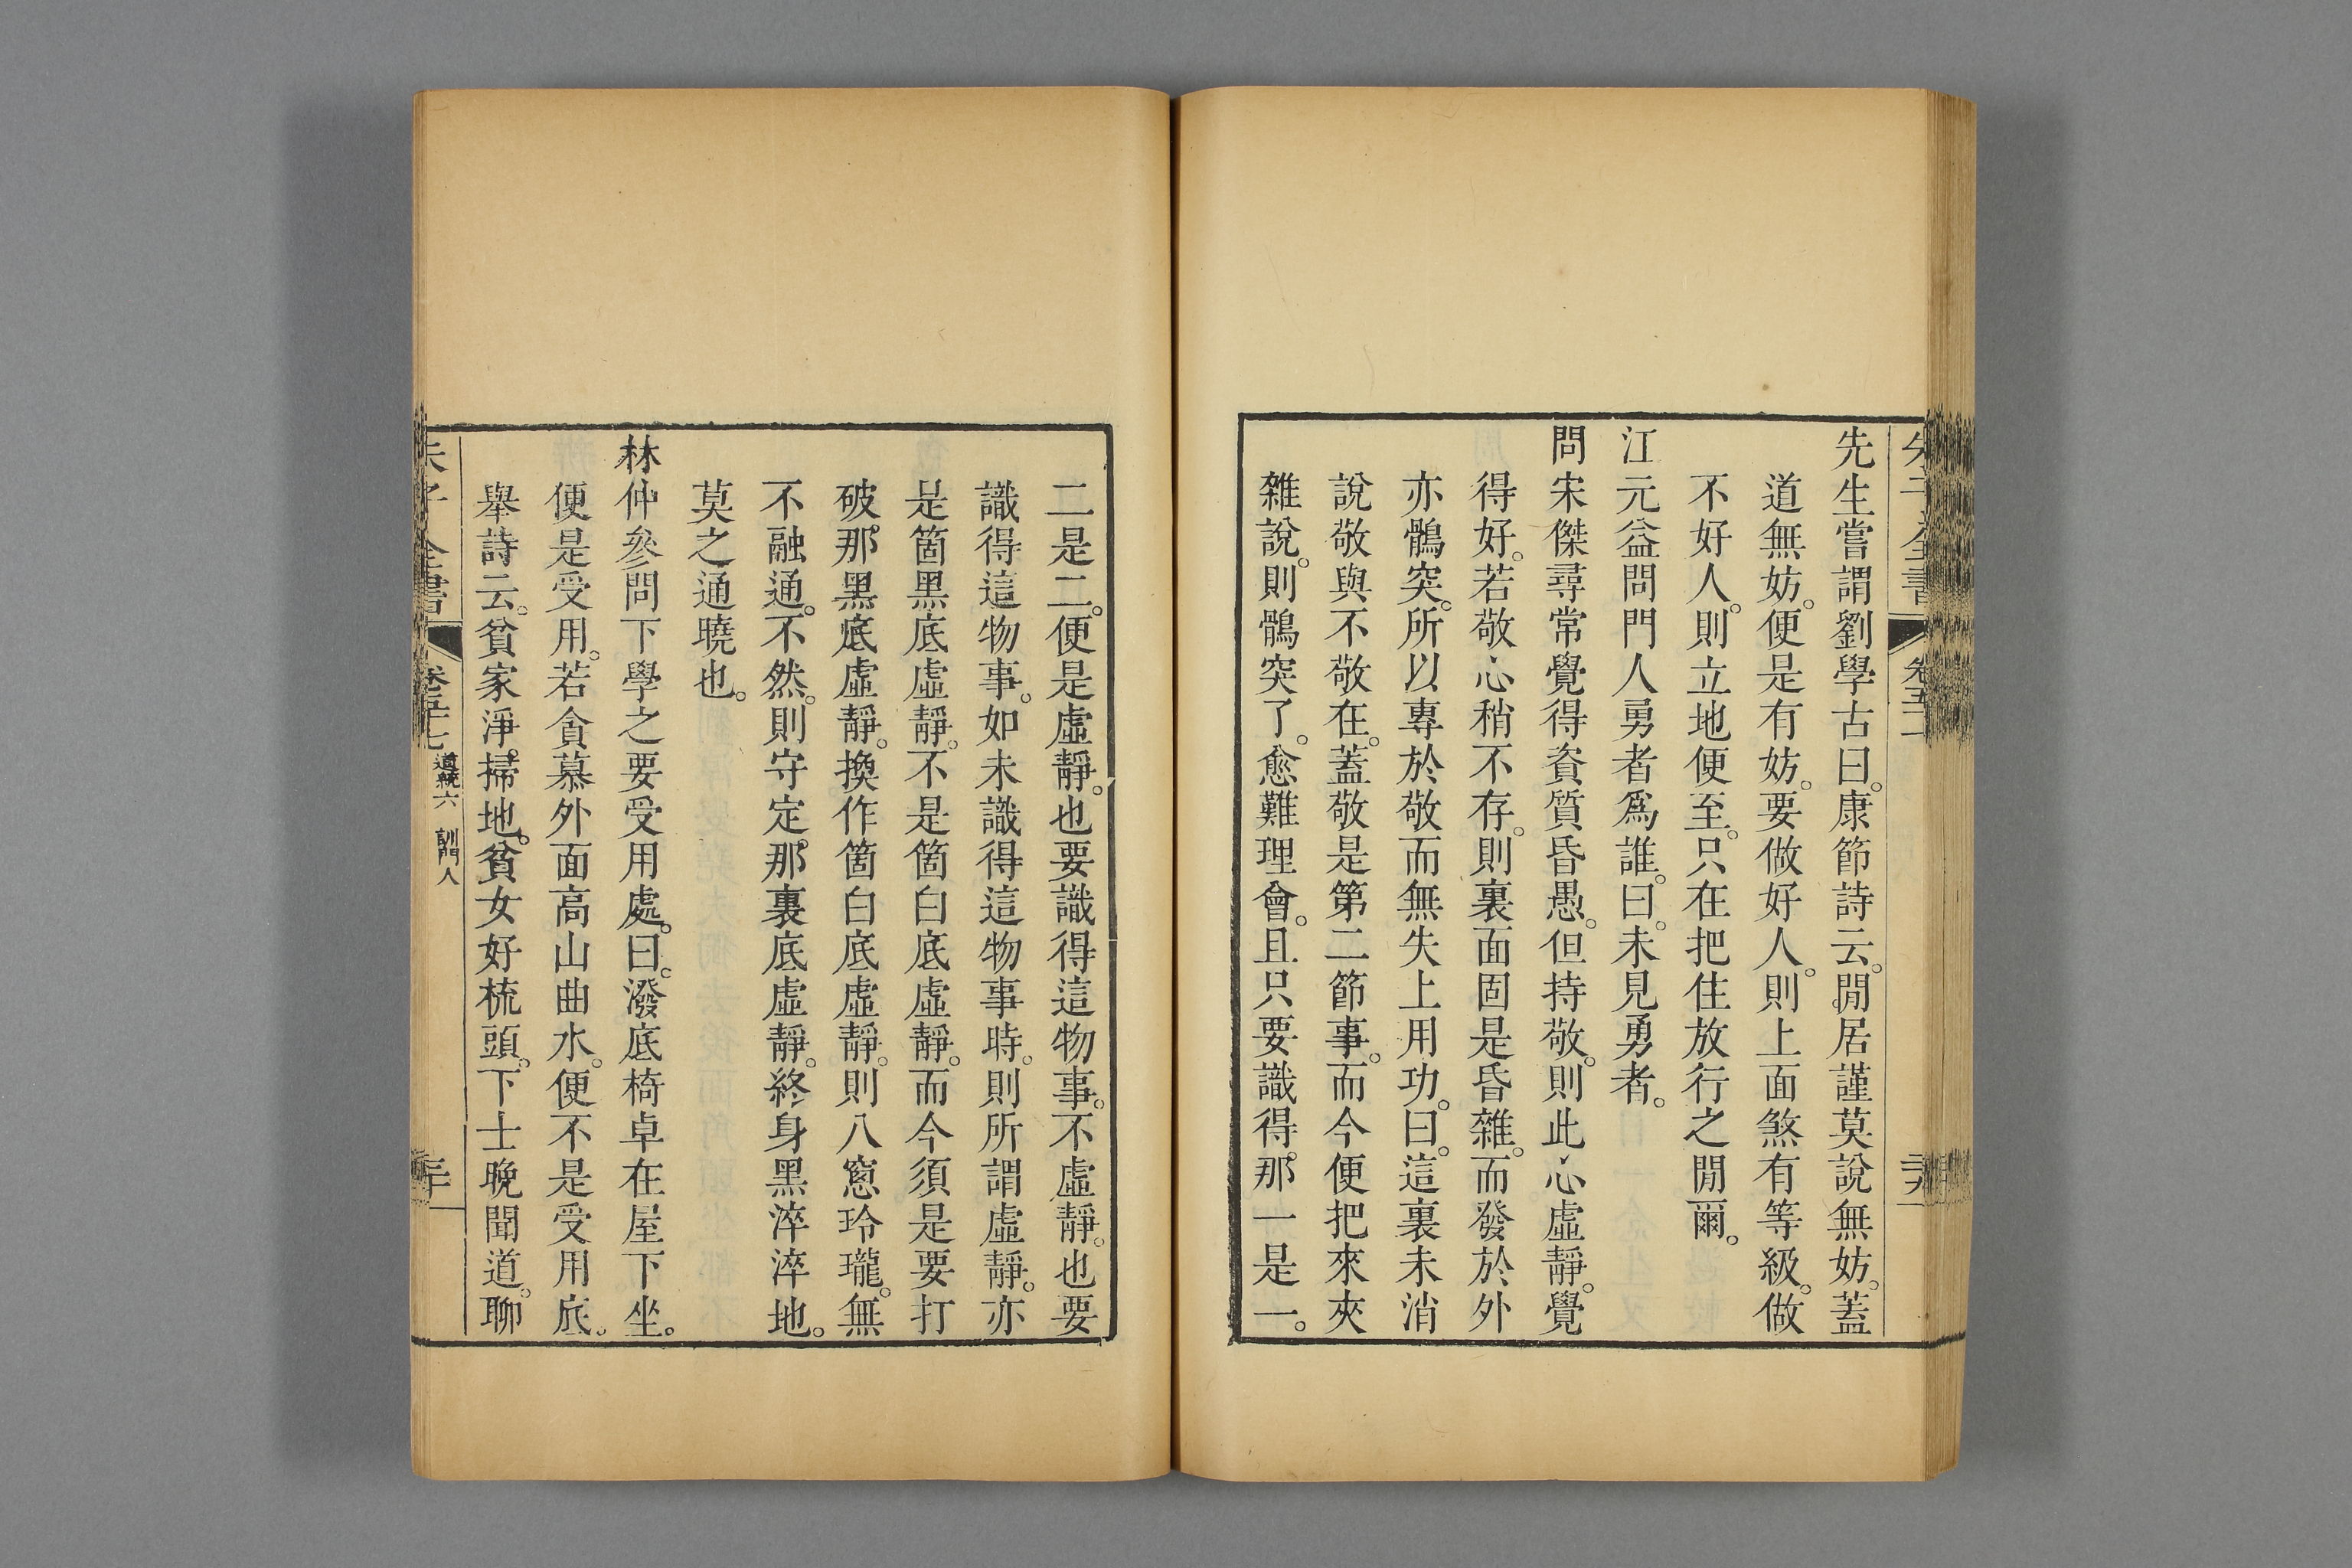 先生嘗謂劉學古曰。康節詩云。閒居謹莫說無妨。蓋
道無妨。便是有妨。要做好人。則上面煞有等級。做
不好人。則立地便至。只在把住放行之閒爾。
江元益問門人勇者爲誰。曰。未見勇者。
問宋傑尋常覺得資質昏愚。但持敬。則此心虛靜。覺
得好。若敬心稍不存。則裏面固是昏雜。而發於外
亦鶻突。所以專於敬而無失上用功。曰。這裏未消
說敬與不敬在。蓋敬是第二節事。而今便把來夾
雜說。則鶻突了。愈難理會。且只要識得。那一是一。
二是二。便是虛靜。也要識得這物事。不虛靜。也要
識得這物事。如未識得這物事時。則所謂虛靜。亦
是箇黑底虛靜。不是箇白底虛靜。而今須是要打
破那黑底虛靜。換作箇白底虛靜。則八窻玲瓏。無
不融通。不然。則守定那裏底虛靜。終身黑淬淬地。
莫之通曉也。
林仲參問下學之要受用處。曰。潑底椅卓在屋下坐。
便是受用。若貪慕外面高山曲水。便不是受用底。
舉詩云。貧家淨掃地。貧女好梳頭。下士晚聞道。聊
朱子全書 道統六 訓門人